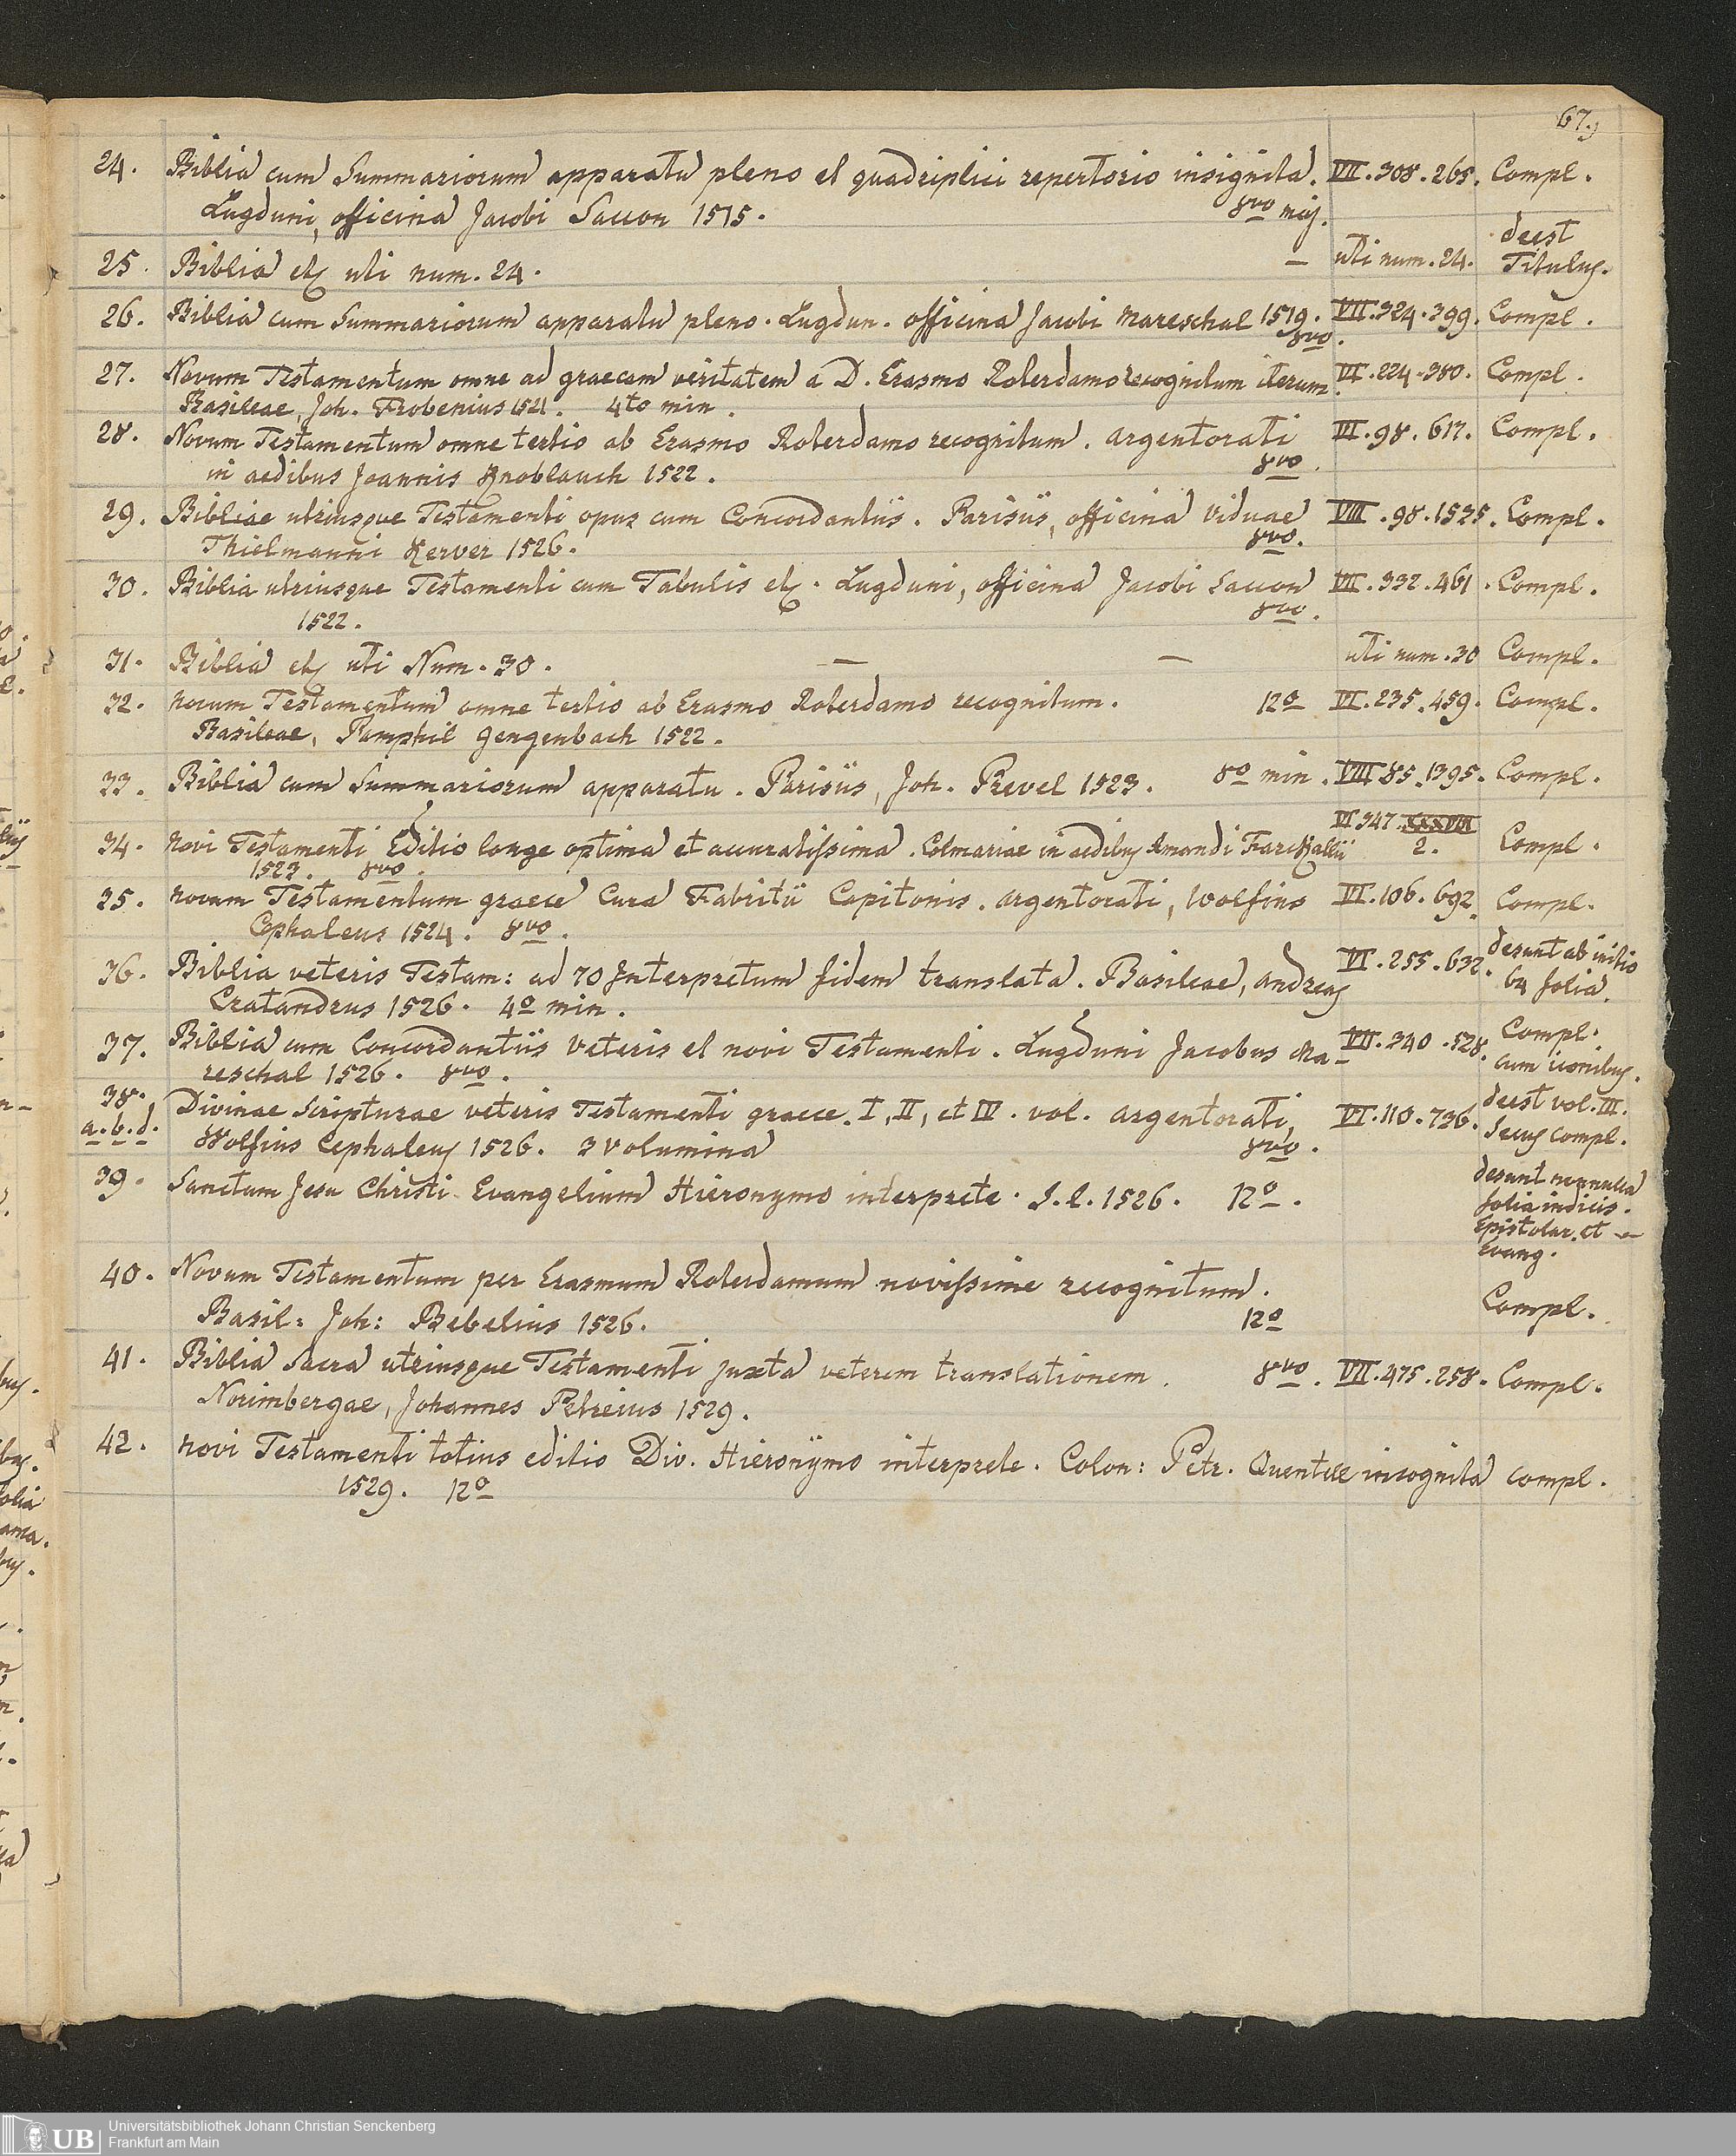 67.
24. Biblia cum Summariorum apparatu pleno et quadriplici repertorio insignita. VII. 308. 265. Compl.
Lugduni, officina Jacobi Saccon 1515. 8vo maj.
25. Biblia etc uti num. 24. — uti num. 24. deest Titulus.
26. Biblia cum Summariorum apparatu pleno. Lugdun. officina Jacobi Mareschal 1519. VII. 324. 399. Compl.
8vo.
27. Novum Testamentum omne ad graecam veritatem a D. Erasmo Roterdamo recognitum iterum. VI. 224. 380. Compl.
Basileae, Joh. Frobenius 1521. 4to min.
28. Novum Testamentum omne tertio ab Erasmo Roterdamo recognitum. Argentorati VI. 98. 617. Compl.
in aedibus Joannis Knoblauch 1522. 8vo.
29. Bibliae utriusque Testamenti opus cum Concordantiis. Parisiis, officina viduae VIII. 98. 1525. Compl.
Thielmanni Kerver 1526. 8vo.
30. Biblia utriusque Testamenti cum Tabulis etc. Lugduni, officina Jacobi Saccon VII. 332. 461. Compl.
1522. 8vo.
31. Biblia etc uti Num. 30. — — uti num. 30 Compl.
32. Novum Testamentum omne tertio ab Erasmo Roterdamo recognitum. 12o VI. 235. 459. Compl.
Basileae, Pamphil Gengenbach 1522.
33. Biblia cum Summariorum apparatu. Parisiis, Joh. Prevel 1523. 8o min. VIII 85. 1395. Compl.
34. Novi Testamenti Editio longe optima et accuratissima. Colmariae in aedibus Amandi Farckallii VI 347. XXXVIII 2. Compl.
1523. 8vo.
35. Novum Testamentum graece Cura Fabritii Capitonis. Argentorati, Wolfius VI. 106. 692. Compl.
Cephaleus 1524. 8vo.
36. Biblia veteris Testam: ad 70 Interpretum fidem translata. Basileae, Andreas VI. 255. 632. desunt ab initio
Cratandrus 1526. 4o min. 64 folia.
37. Biblia cum Concordantiis Veteris et novi Testamenti. Lugduni Jacobus Ma- VII. 340. 528. Compl.
reschal 1526. 8vo. cum iconibus.
38. a. b. d. Divinae Scripturae veteris Testamenti graece. I, II, et IV. vol. Argentorati, VI. 110. 736. deest vol. III.
Wolfius Cephaleus 1526. 3 Volumina 8vo. Secus compl.
39. Sanctum Jesu Christi Evangelium Hieronymo interprete. S. l. 1526. 12o. desunt nonnulla
folia indicis.
Epistolar. et
Evang.
40. Novum Testamentum per Erasmum Roterdamum novissime recognitum.
Basil: Joh: Bebelius 1526. 12o Compl.
41. Biblia Sacra utriusque Testamenti juxta veterem translationem. 8vo. VII. 475. 258. Compl.
Norimbergae, Johannes Petreius 1529.
42. Novi Testamenti totius editio Div. Hieronÿmo interprete. Colon: Petr. Quentel incognita compl.
1529. 12o
UB Universitätsbibliothek Johann Christian Senckenberg
Frankfurt am Main